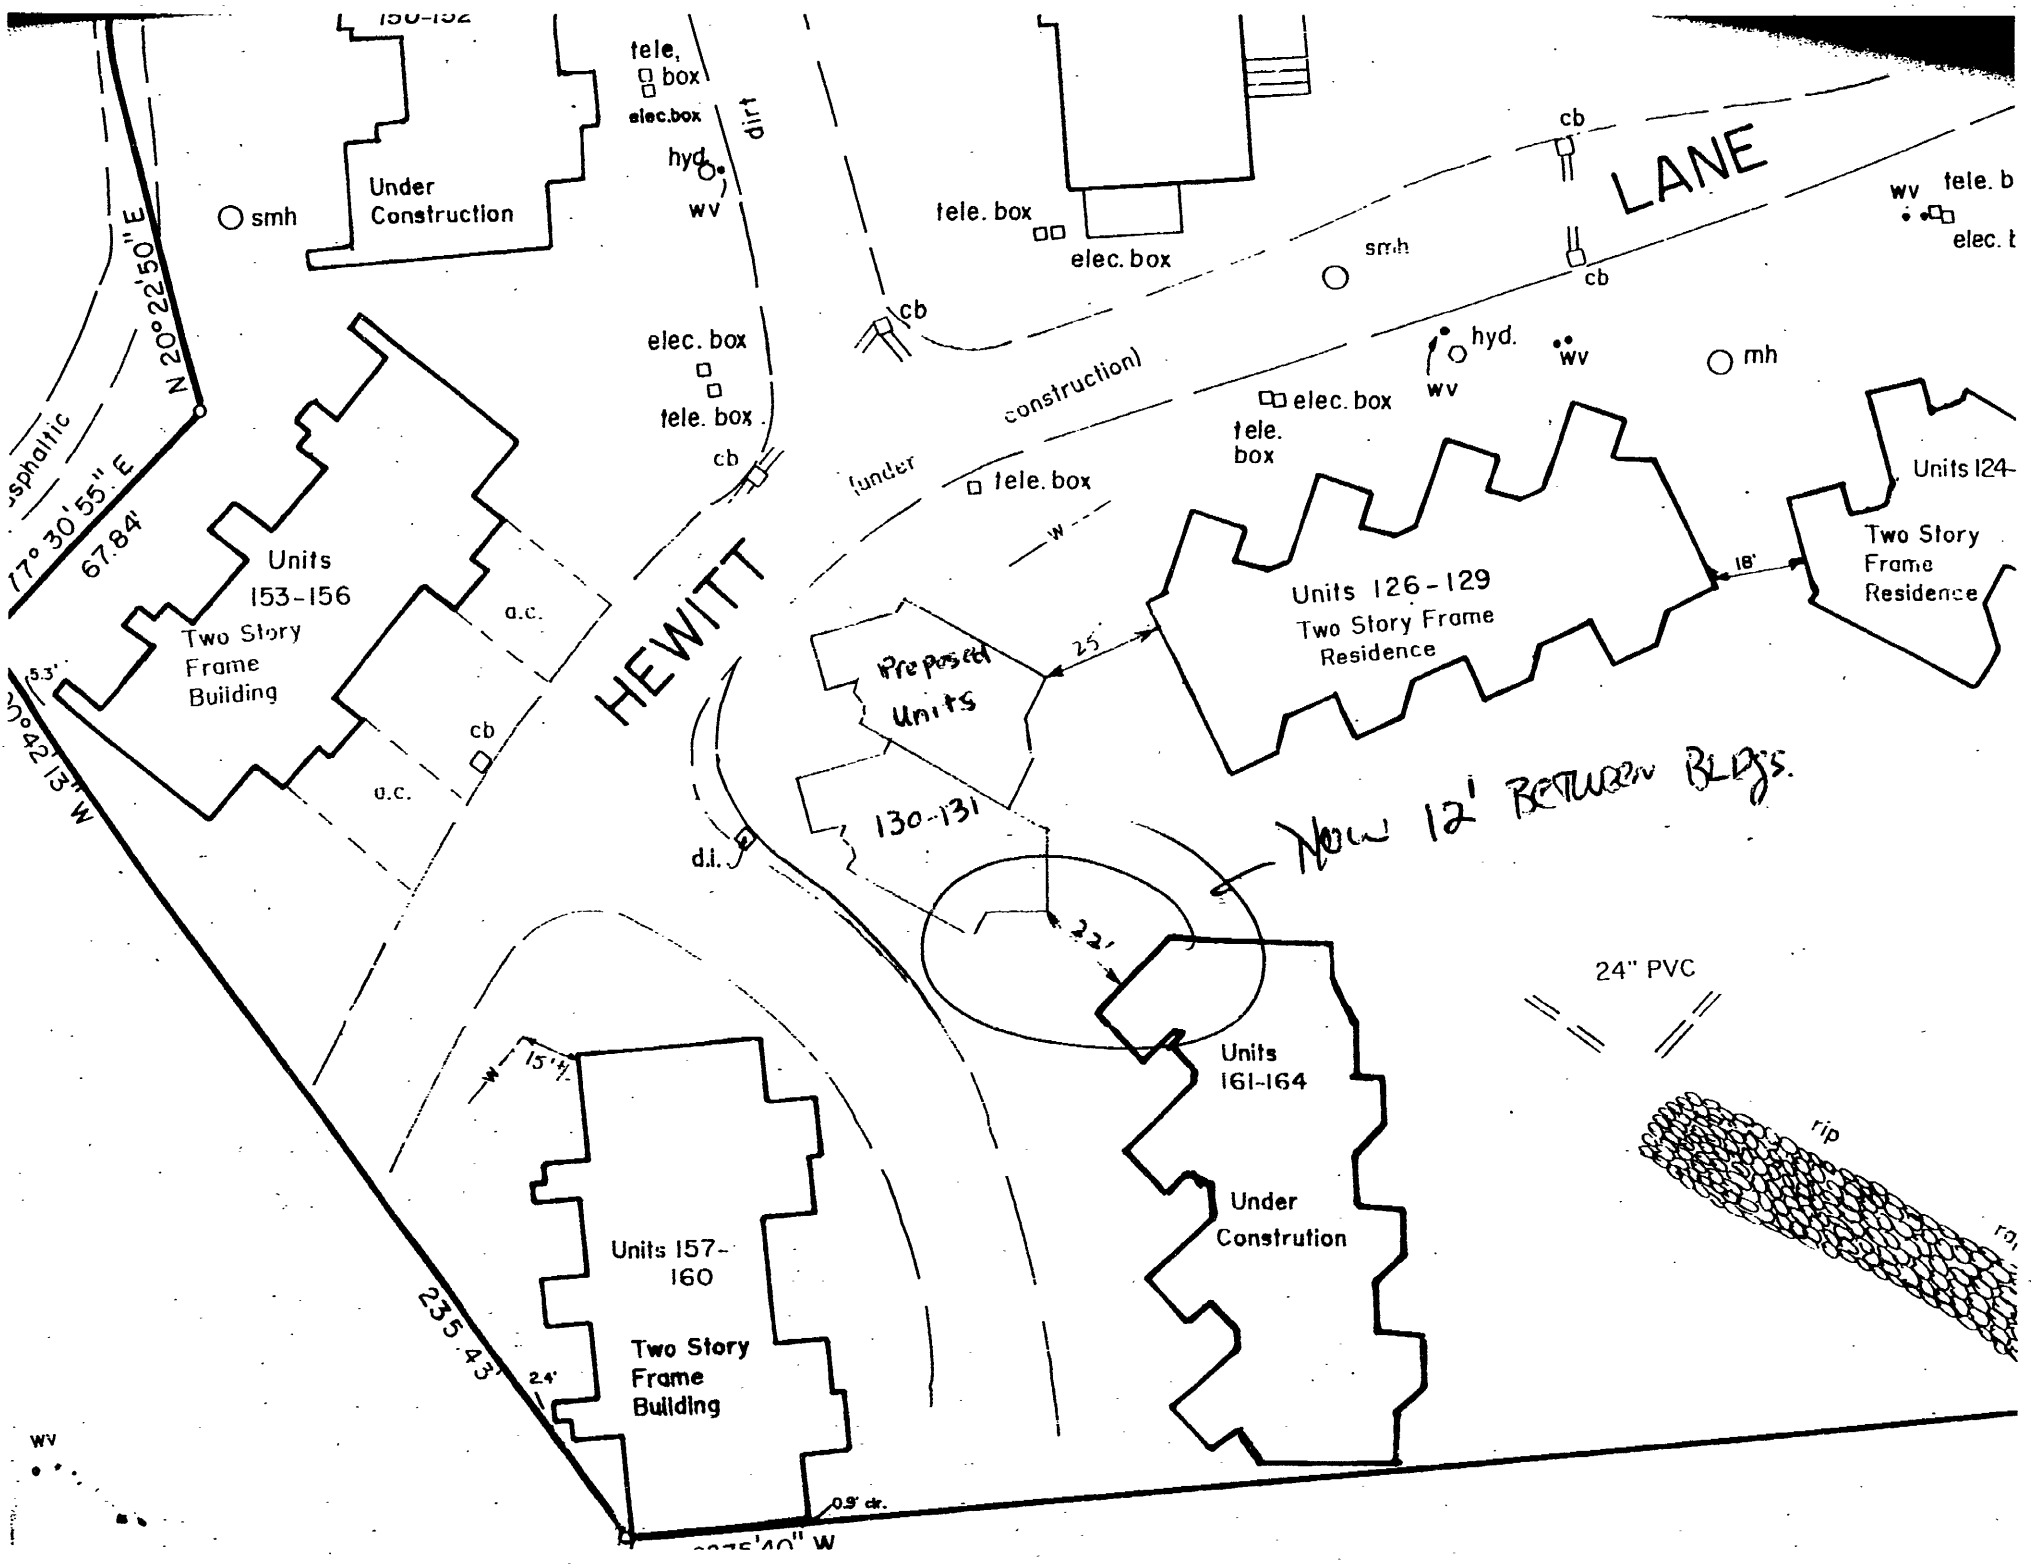 150-152
tele.
box
elec.box
dirt
hyd.
wv
Under
Construction
smh
N 20° 22' 50" E
tele. box
elec. box
cb
LANE
cb
smh
wv
tele. b
elec. b
cb
hyd.
wv
wv
mh
elec. box
tele. box
cb
construction)
(under
elec. box
tele.
box
tele. box
w
asphaltic
77° 30' 55" E
67.84'
Units
153-156
Two Story
Frame
Building
a.c.
a.c.
cb
5.3'
0° 42' 13" W
HEWITT
Proposed
Units
130-131
25'
Units 126-129
Two Story Frame
Residence
18'
Units 124-
Two Story
Frame
Residence
Now 12' BETWEEN BLDGS.
d.i.
22'
24" PVC
w
15' +/-
Units
161-164
Under
Constrution
rip
rap
Units 157-
160
Two Story
Frame
Building
235.43'
2.4'
0.9' clr.
wv
75' 40" W